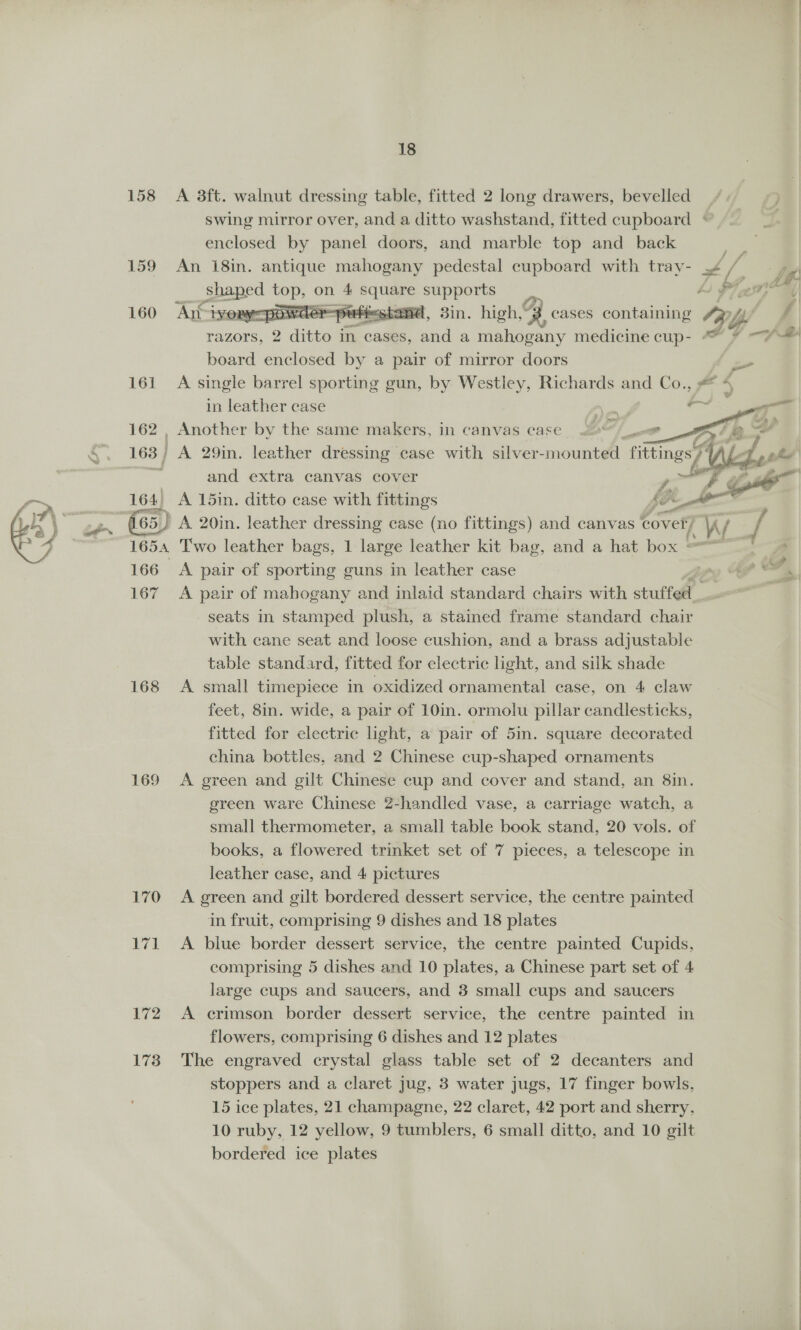 18
158 A 3ft. walnut dressing table, fitted 2 long drawers, bevelled
swing mirror over, and a ditto washstand, fitted cupboard
enclosed by panel doors, and marble top and back
159 An 18in. antique mahogany pedestal cupboard with tray-
shaped top, on 4 square supports
160 An ivory powder puff stand, 3in. high, 3 cases containing
razors, 2 ditto in cases, and a mahogany medicine cup-
board enclosed by a pair of mirror doors
161 A single barrel sporting gun, by Westley, Richards and Co.,
in leather case
162 Another by the same makers, in canvas case
163 A 29in. leather dressing case with silver-mounted fittings
and extra canvas cover
164 A 15in. ditto case with fittings
165 A 20in. leather dressing case (no fittings) and canvas cover
165A Two leather bags, 1 large leather kit bag, and a hat box
166 A pair of sporting guns in leather case
167 A pair of mahogany and inlaid standard chairs with stuffed
seats in stamped plush, a stained frame standard chair
with cane seat and loose cushion, and a brass adjustable
table standard, fitted for electric light, and silk shade
168 A small timepiece in oxidized ornamental case, on 4 claw
feet, 8in. wide, a pair of 10in. ormolu pillar candlesticks,
fitted for electric light, a pair of 5in. square decorated
china bottles, and 2 Chinese cup-shaped ornaments
169 A green and gilt Chinese cup and cover and stand, an 8in.
green ware Chinese 2-handled vase, a carriage watch, a
small thermometer, a small table book stand, 20 vols. of
books, a flowered trinket set of 7 pieces, a telescope in
leather case, and 4 pictures
170 A green and gilt bordered dessert service, the centre painted
in fruit, comprising 9 dishes and 18 plates
171 A blue border dessert service, the centre painted Cupids,
comprising 5 dishes and 10 plates, a Chinese part set of 4
large cups and saucers, and 3 small cups and saucers
172 A crimson border dessert service, the centre painted in
flowers, comprising 6 dishes and 12 plates
173 The engraved crystal glass table set of 2 decanters and
stoppers and a claret jug, 3 water jugs, 17 finger bowls,
15 ice plates, 21 champagne, 22 claret, 42 port and sherry,
10 ruby, 12 yellow, 9 tumblers, 6 small ditto, and 10 gilt
bordered ice plates